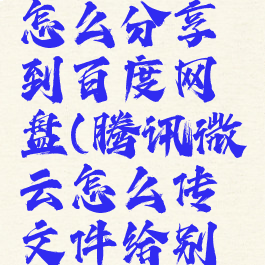 怎么分享
到百度网
盘(腾讯微
云怎么传
文件给别